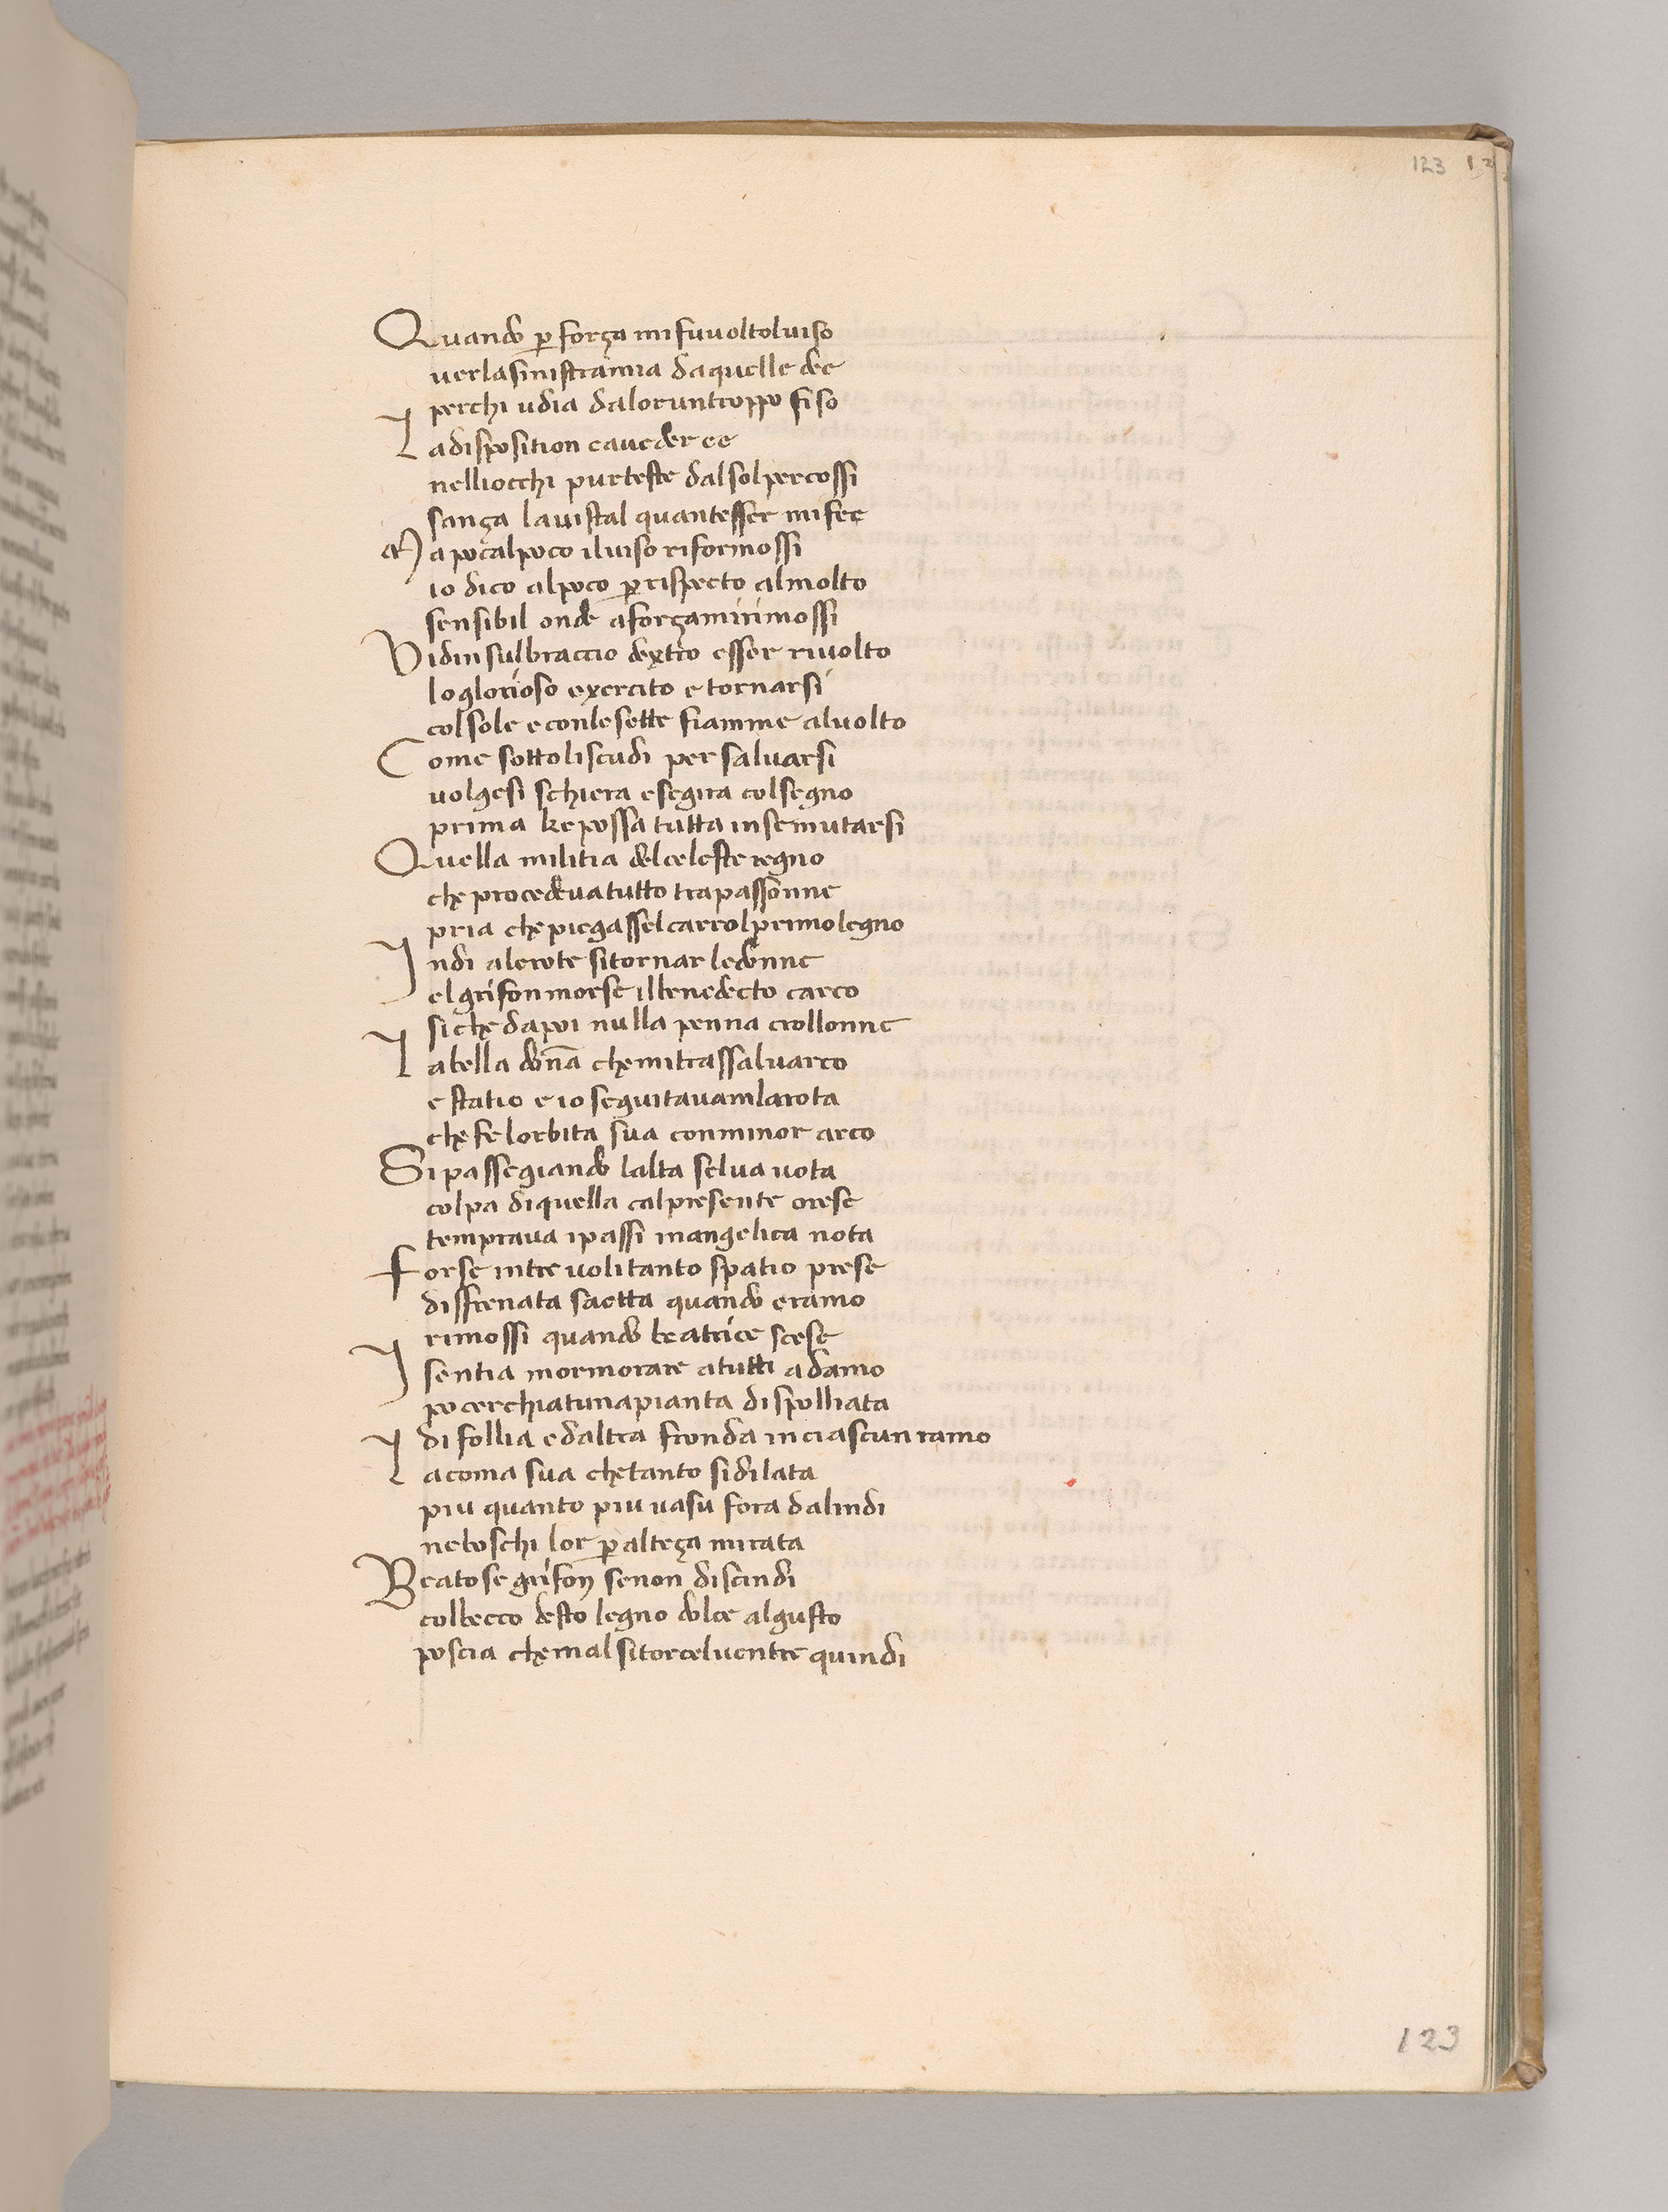 123
Quando ꝑ força mi fu uolto luiso
uer la sinistra mia da quelle dee
perchi udia da lor un troppo fiso
La disposition cauceder ee
nelli occhi pur teste dal sol percossi
sança la uista l quantesser mi fee
Ma po cal poco il uiso riformossi
io dico al poco ꝑ rispecto al molto
sensibil onde a força mi rimossi
Vidin sul braccio dextro esser riuolto
lo glorioso exercito e tornarsi
col sole e con le sette fiamme al uolto
Come sotto li scudi per saluarsi
uolgesi schiera e segira col segno
prima ke possa tutta in se mutarsi
Quella militia del celeste regno
che procedeua tutto trapassonne
pria che piegassel carrol primo legno
Indi a le rote si tornar le donne
el grifon morse il benedecto carco
si che da poi nulla penna crollonne
La bella don̄a che mi trassal uarco
e statio e io seguitauam la rota
che fe lorbita sua con minor arco
Si passegiando lalta selua uota
colpa di quella cal presente crese
tempraua i passi in angelica nota
Forse in tre uoli tanto spatio prese
disfrenata saetta quando eramo
rimossi quando beatrice scese
I sentia mormorare a tutti adamo
po cerchiatuna pianta dispolliata
di follia e daltra fronda in ciascun ramo
La coma sua che tanto si dilata
piu quanto piu ua su fora da lindi
ne boschi lor ꝑ alteça mirata
Beato se grifon se non discindi
col becco desto legno dolce al gusto
poscia che mal si torcel uentre quindi
123